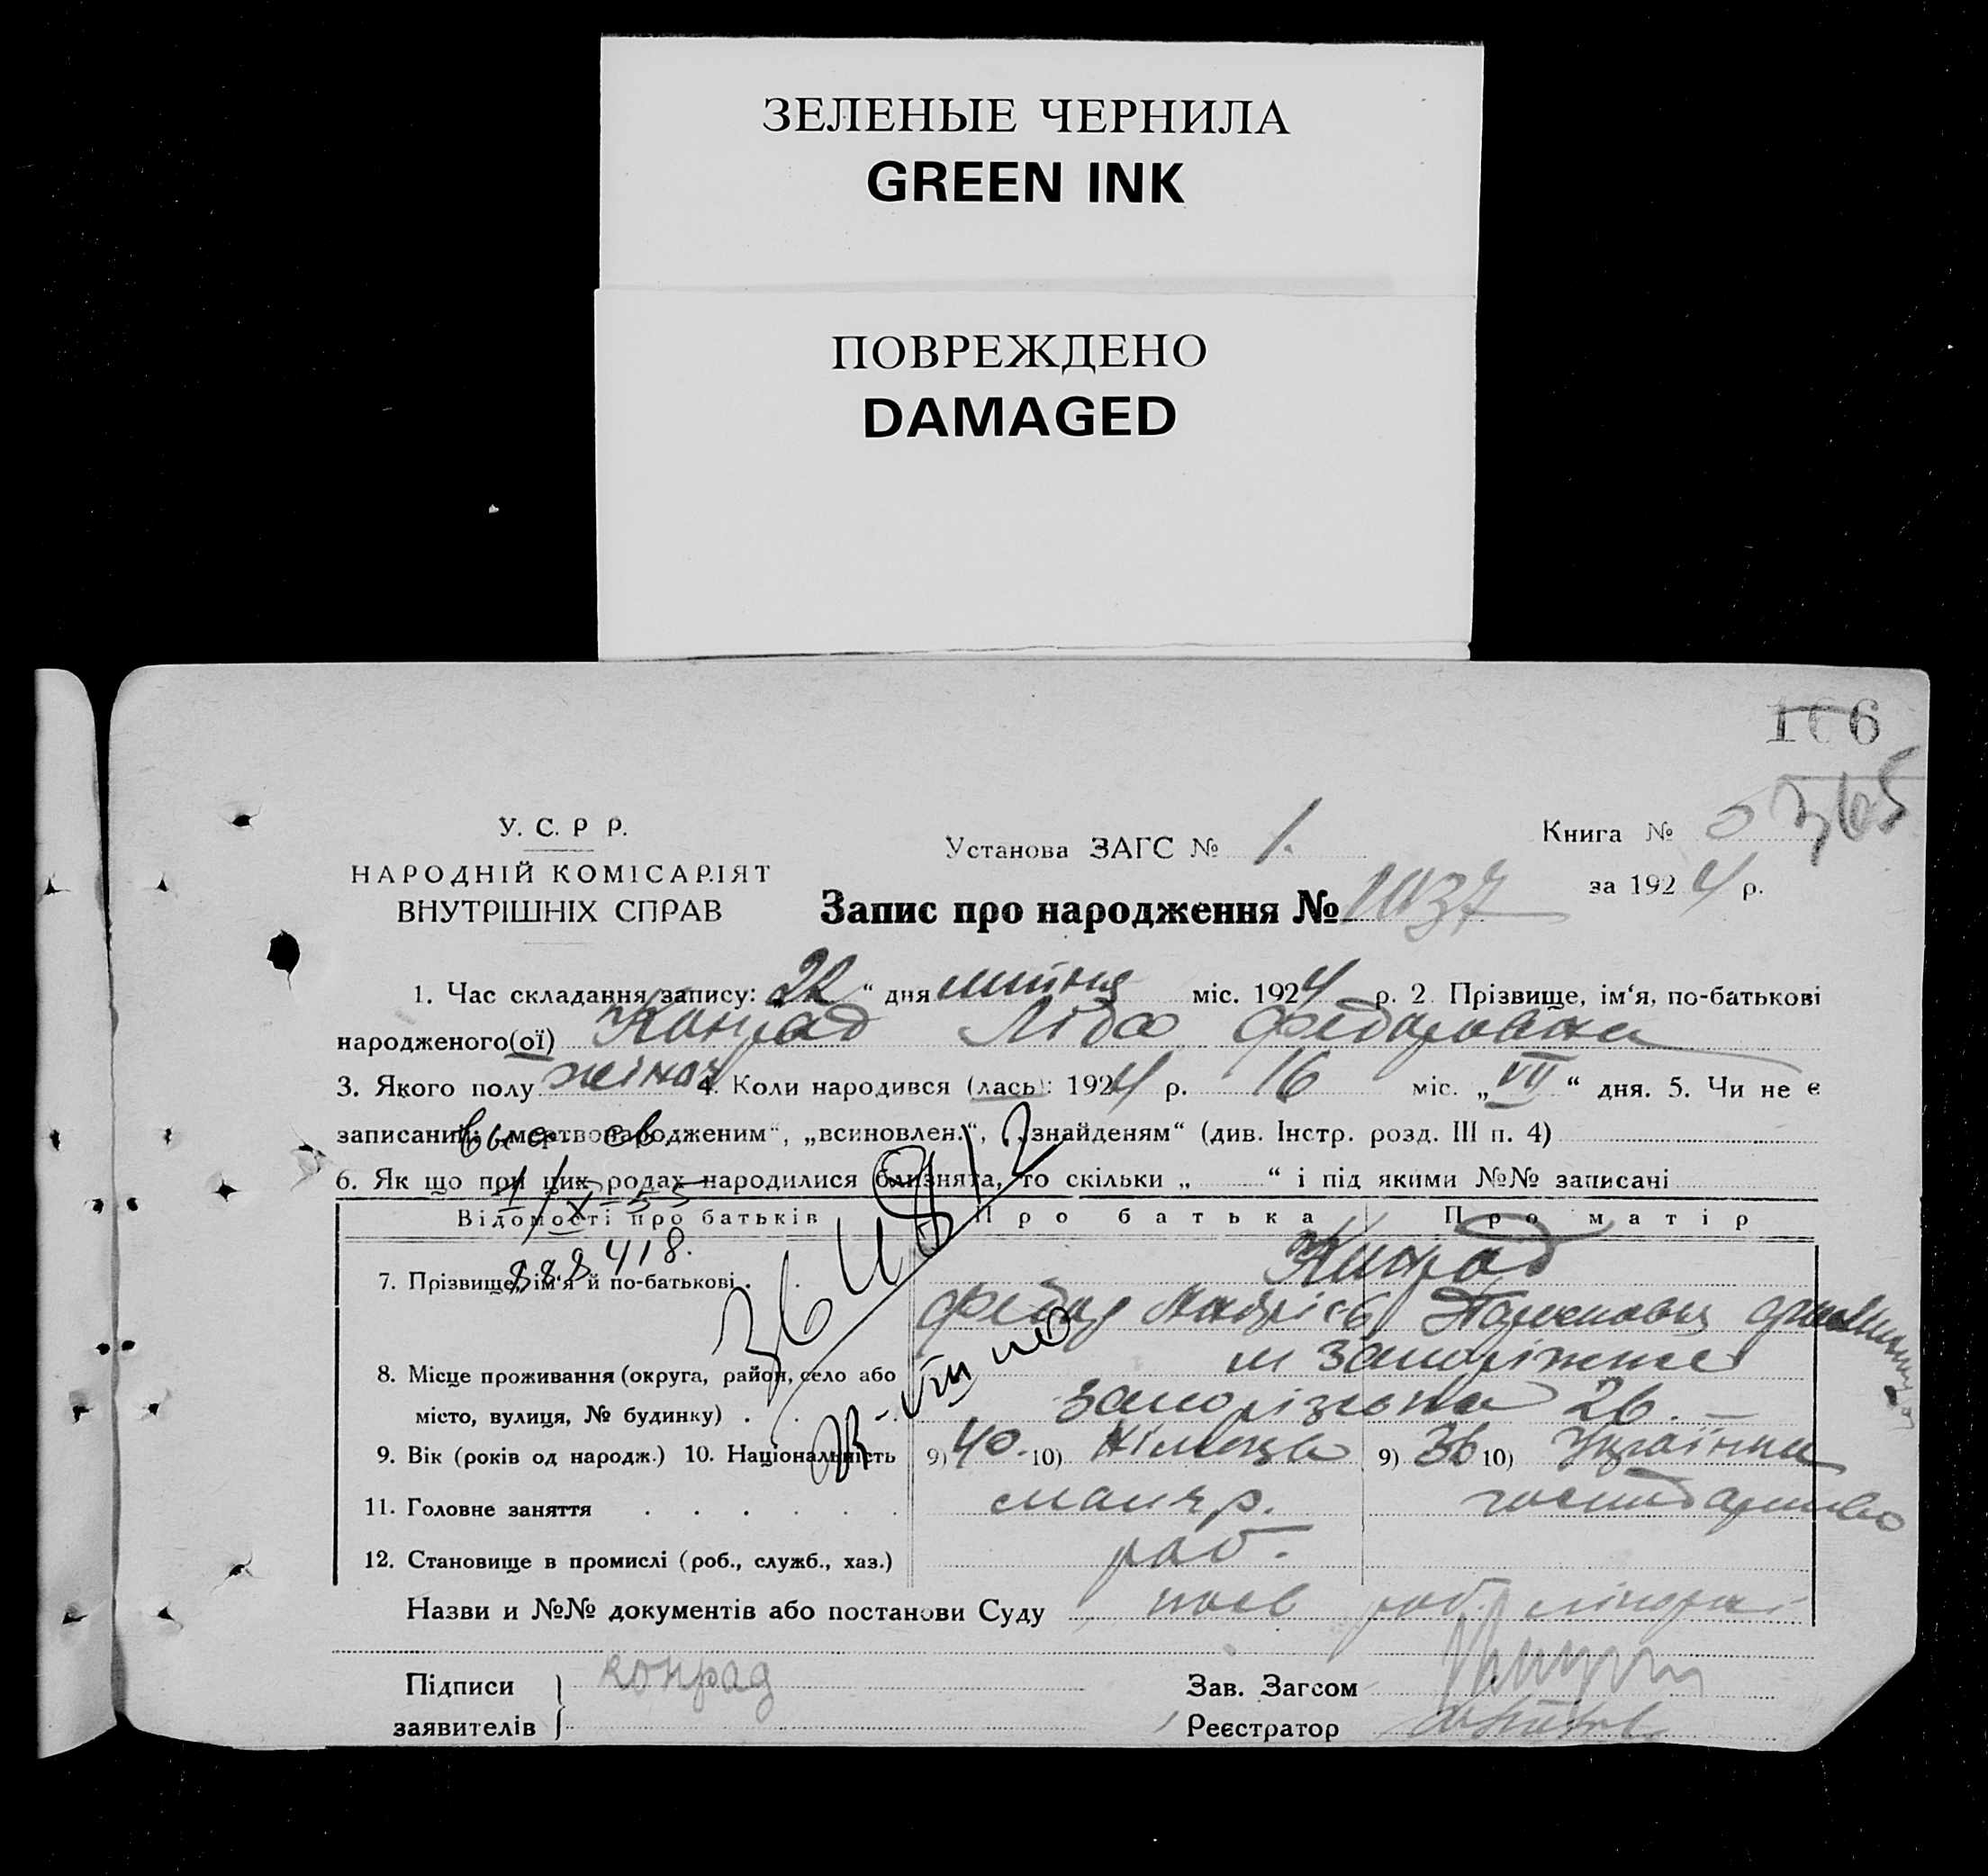 ЗЕЛЕНЫЕ ЧЕРНИЛА
GREEN INK
ПОВРЕЖДЕНО
DAMAGED
106
365
У. С. Р Р.
НАРОДНІЙ КОМІСАРІЯТ
ВНУТРІШНІХ СПРАВ
Установа ЗАГС № 1.
Книга № 5
за 1924 р.
Запис про народження № 1037
1. Час складання запису: „22“ дня липня міс. 1924 р. 2. Прізвище, ім‘я, по-батькові
народженого(ої) Конрад Ліда Федоровна
3. Якого полу жіноч 4. Коли народився (лась): 1924 р. 16 міс. „VII“ дня. 5. Чи не є
записаний: „мертвонародженим“, „всиновлен.“, „знайденям“ (див. Інстр. розд. III п. 4)
6. Як що при цих родах народилися близнята, то скільки „ “ і під якими №№ записані
Відомості про батьків Про батька Про матір
7. Прізвище, ім‘я й по-батькові Конрад
Федор
8. Місце проживання (округа, район, село або м Запоріжже
місто, вулиця, № будинку) Запорізька 26.
9. Вік (років од народж.) 10. Національність 9) 40. 10) 9) 36 10) Українка
11. Головне заняття маляр. господарство
12. Становище в промислі (роб., служб., хаз.) роб.
Назви и №№ документів або постанови Суду
Підписи конрад
заявителів
Зав. Загсом
Реєстратор
888418.